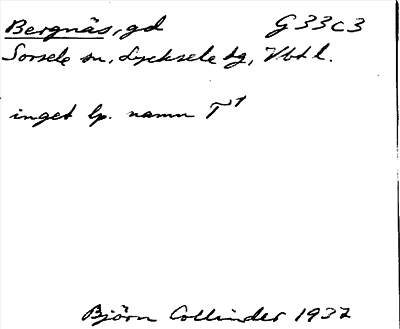 Bergnäs, gd G 33 c 3
Sorsele sn, Lycksele tg, Vbtl.
inget lp. namn T¹
Björn Collinder 1937